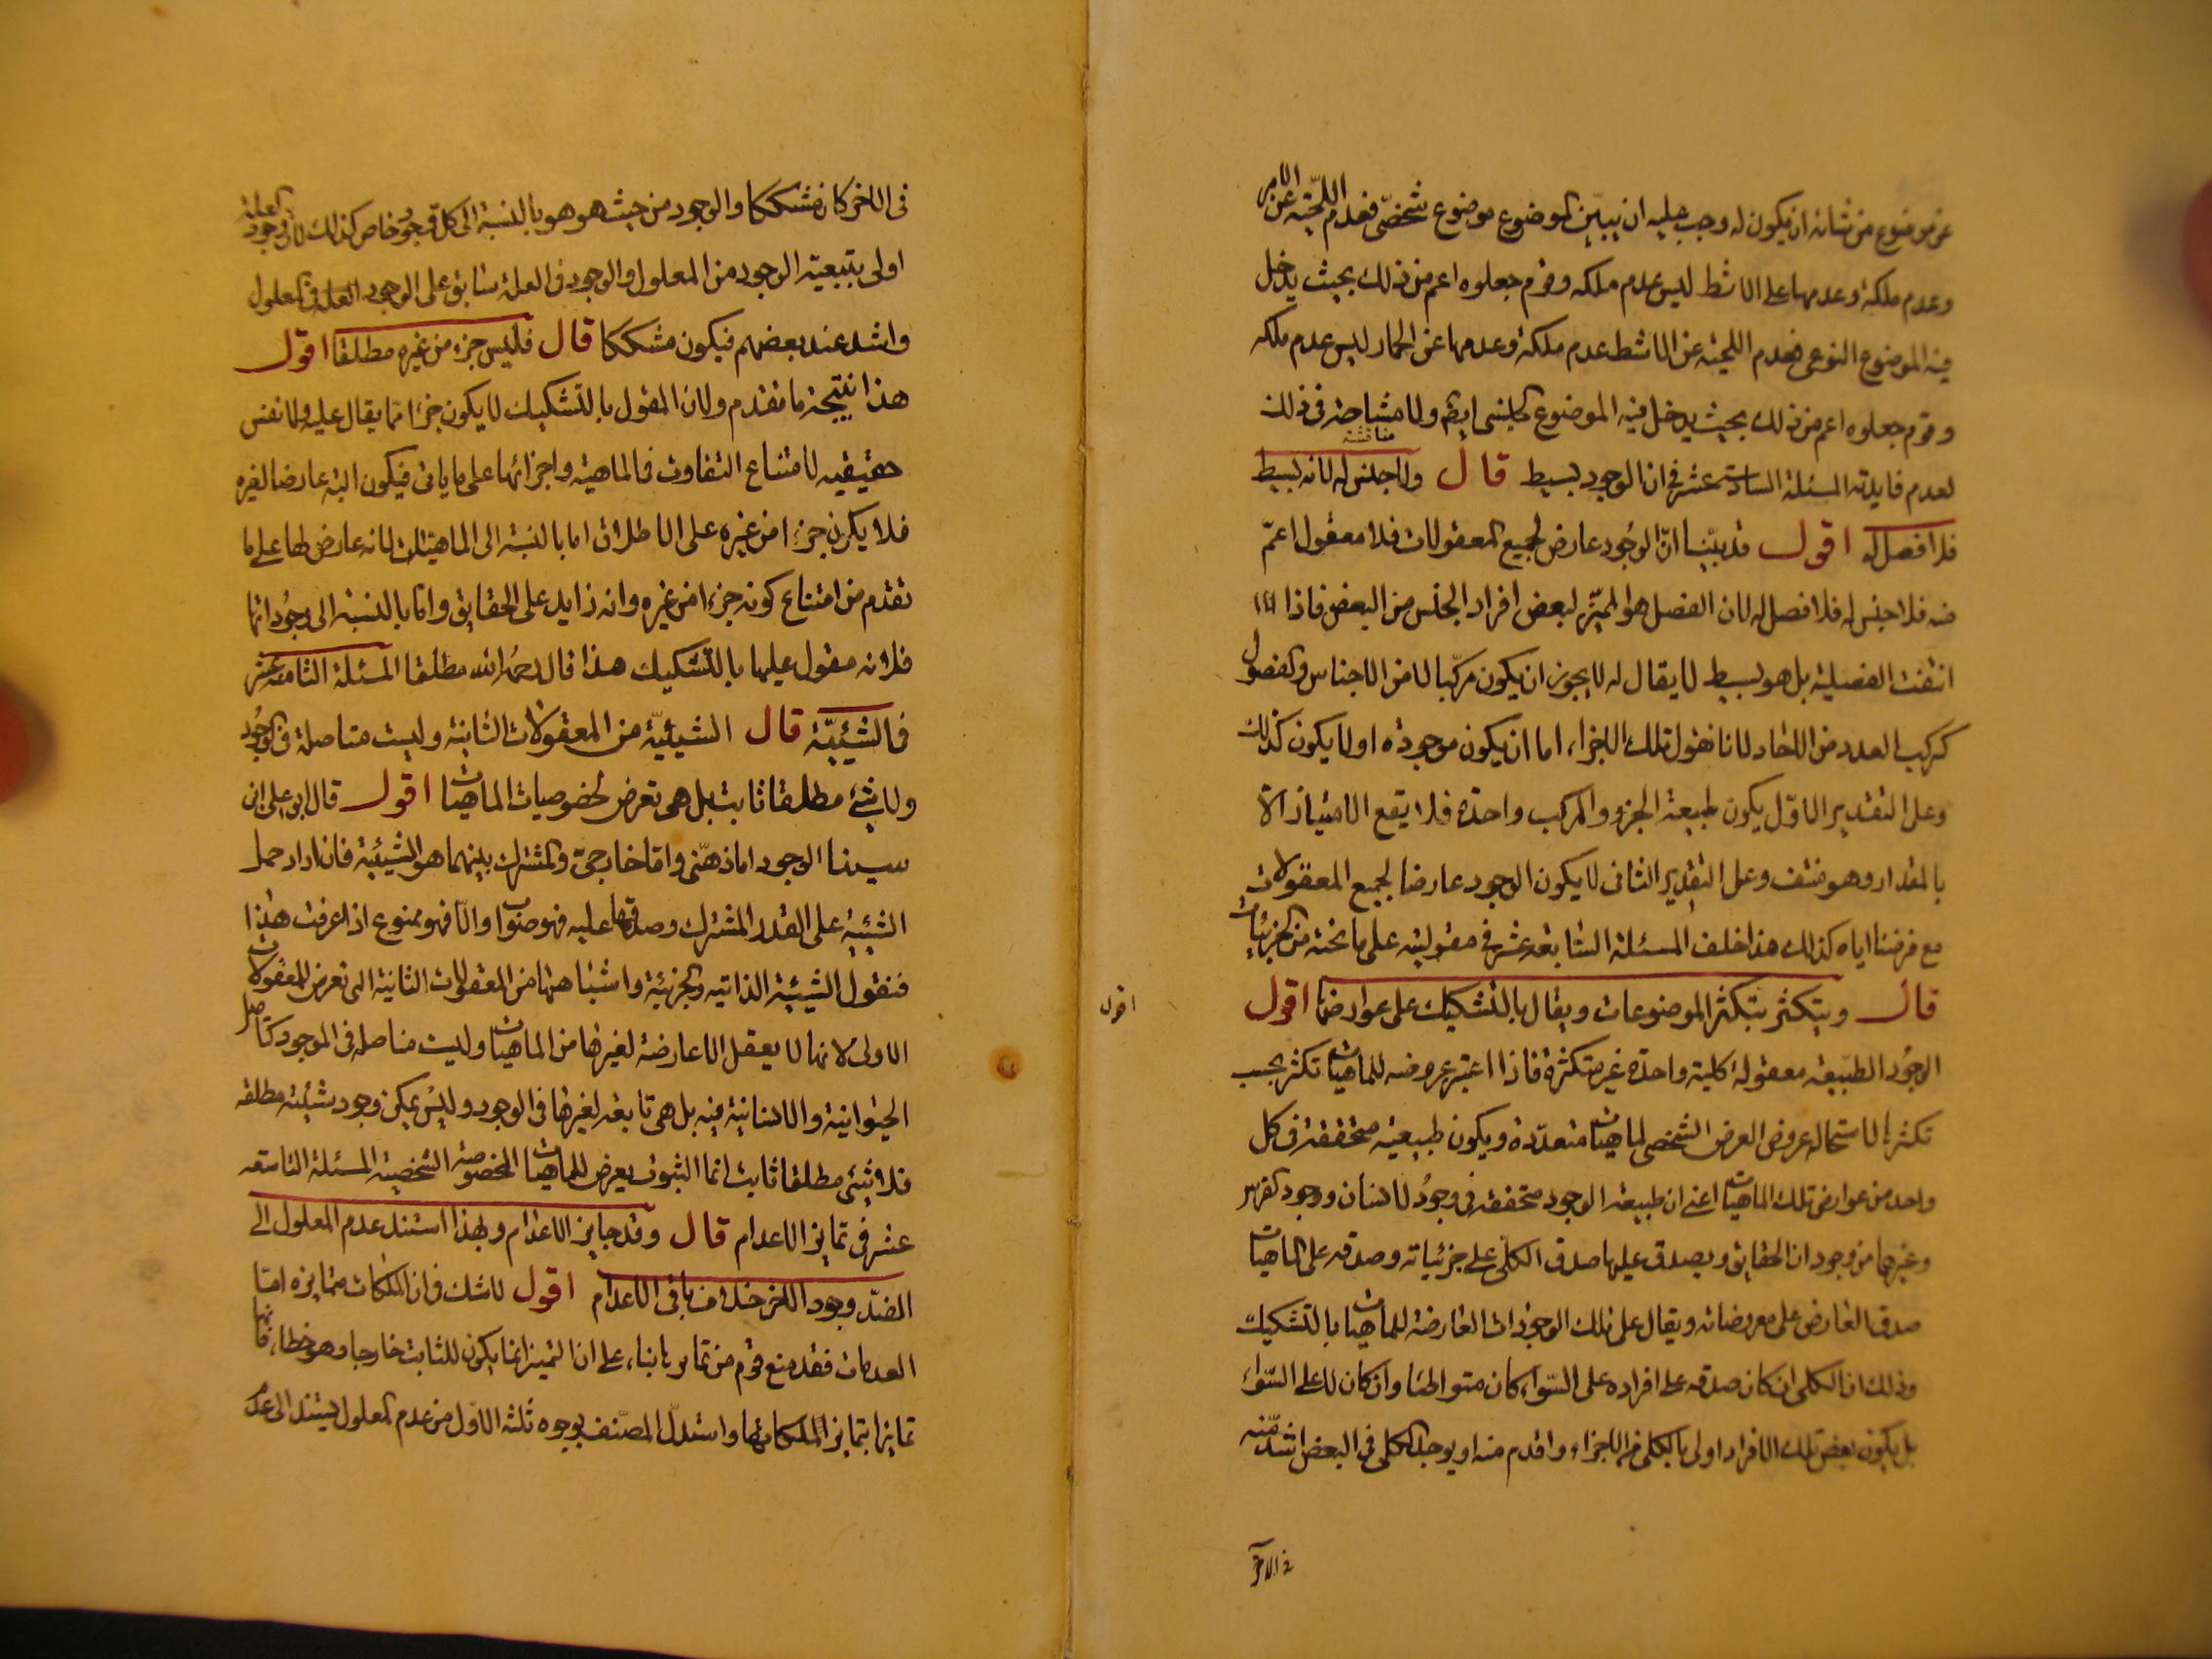 عن موضوع من شانه ان يكون له وجب عليه ان يبين الموضوع موضوع شخصي فعدم اللحية عن الامر
وعدم ملكة وعدمها على الاشط ليس عدم ملكه وقوم جعلوه اعم من ذلك بحيث يدخل
فيه الموضوع النوعى فعدم اللحيته عن الاشط عدم ملكة وعدمها عن الحمار ليس عدم ملكه
وقوم جعلوه اعم من ذلك بحيث يدخل فيه الموضوع الجنسى ايضا ولا مشاحة فى ذلك
مناقشة
لعدم فايدته المسئلة السادسة عشر فى ان الوجود بسيط قال ولا جنس له لانه بسيط
فلا فصل له اقول قد بيّنا انّ الوجُود عارض لجميع المعقولات فلا معقول اعمّ
منه فلا جنس له فلا فصل له لان الفصل هو المميّز لبعض افراد الجنس من البعض فاذا
انتفت الفصلية بل هو بسيط لا يقال له لا يجوز ان يكون مركّبا لا من الاجناس والفصول
كتركب العدد من الاحاد لانا نقول تلك الاجزاء اما ان يكون موجودة او لا يكون كذلك
وعلى التقدير الاوّل يكون طبيعة الجزء والمركب واحدة فلا يقع الامتياز الا
بالمقدار وهو منتف وعلى التقدير الثانى لا يكون الوجود عارضا لجميع المعقولات
مع فرضنا اياه كذلك هذا خلف المسئلة السابعة عشر فى مقوليته على ما تحته من الجزئيات
قال ويتكثر بتكثر الموضوعات ويقال بالتشكيك على عوارضها اقول
الوجُود الطبيعة معقولة كلية واحدة غير متكثرة فاذا اعتبر عروضه للماهيات تكثر بحسب
تكثرها لاستحاله عروض العرض الشخصى لماهيات متعدّدة ويكون طبيعته متحققة فى كل
واحد من عوارض تلك الماهيات اعنى ان طبيعة الوجود متحققة فى وجُود الانسان ووجود الفرس
وغيرهما من وجودات الحقايق ويصدق عليها صدق الكلّى على جزئياته وصدقه على الماهيات
صدق العارض على معروضاته ويقال على تلك الوجودات العارضة للماهيات بالتشكيك
وذلك ان الكلى ان كان صدقه على افراده على السّواء كان متواطئا وان كان لا على السّواء
بل يكون بعض تلك الافراد اولى بالكلى من الاجزاء واقدم منه او يوجد الكلى فى البعض اشدّ منه
فى الاخر
اقول
فى الاخر كان مشككا والوجود من حيث هو هو بالنسبة الى كل وجود خاص كذلك لان وجود العلة
اولى بتبعيته الوجود من المعلول والوجود فى العلة سابق على الوجود العلة فى المعلول
واشد عند بعضهم فيكون مشككا قال فليس جزء من غيره مطلقا اقول
هذا نتيجة ما تقدم ولان المقول بالتشكيك لا يكون جزءا مما يقال عليه ولا نفس
حقيقيه لامتناع التفاوت فى الماهية واجزائها على ما ياتى فيكون البتة عارضا لغيره
فلا يكون جزءا من غيره على الاطلاق اما بالنسبة الى الماهيات لانه عارض لها على ما
تقدم من امتناع كونه جزءا من غيره وانه زايد على الحقايق واما بالنسبة الى وجُوداتها
فلانه مقول عليها بالتشكيك هذا قال رحمه الله مطلقا المسئلة الثامنة عشر
فى الشيئيّة قال الشيئيّة من المعقولات الثانية وليست متاصلة فى الوجُود
ولا شئ مطلقا ثابت بل هى تعرض لخصوصيات الماهيات اقول قال ابو على ابن
سينا الوجود اما ذهنّى واما خارجىّ والمشترك بينهما هو الشيئية فان اراد حمل
الشيئية على القدر المشترك وصدقها عليه فهو صواب والّا فهو ممنوع اذا عرفت هذا
فنقول الشيئية الذاتيه والجزئية واشباههما من المعقولات الثانية التى تعرض للمعقولات
الاولى لانها لا يعقل الا عارضة لغيرها من الماهيات وليست متاصله فى الموجود كتاصل
الحيوانية والانسانية فيه بل هى تابعة لغيرها فى الوجود وليس يمكن وجود شيئية مطلقه
فلا شئى مطلقا ثابت انما الثبوت يعرض للماهيات المخصوصة الشخصية المسئلة التاسعة
عشر فى تمايز الاعدام قال وقد تمايز الاعدام ولهذا استند عدم المعلول الى
الضدّ وجود الاخر خلاف باقى الاعدام اقول لا شك فى ان الملكات متمايزه امّا
العدمات فقد منع قوم من تمايزها بناء على ان التميز انما يكون للثابت خارجا وهو خطاء فانها
تمايزها بتمايز الملكاتها واستدلّ المصنّف بوجوه ثلثة الاوّل من عدم المعلول يستند الى عدم